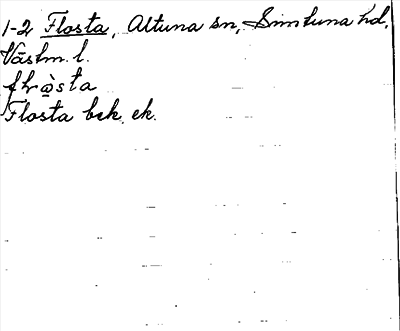 1-2 Flosta, Altuna sn, Simtuna hd,
Västm. l.
flὼsta
Flosta bek. ek.